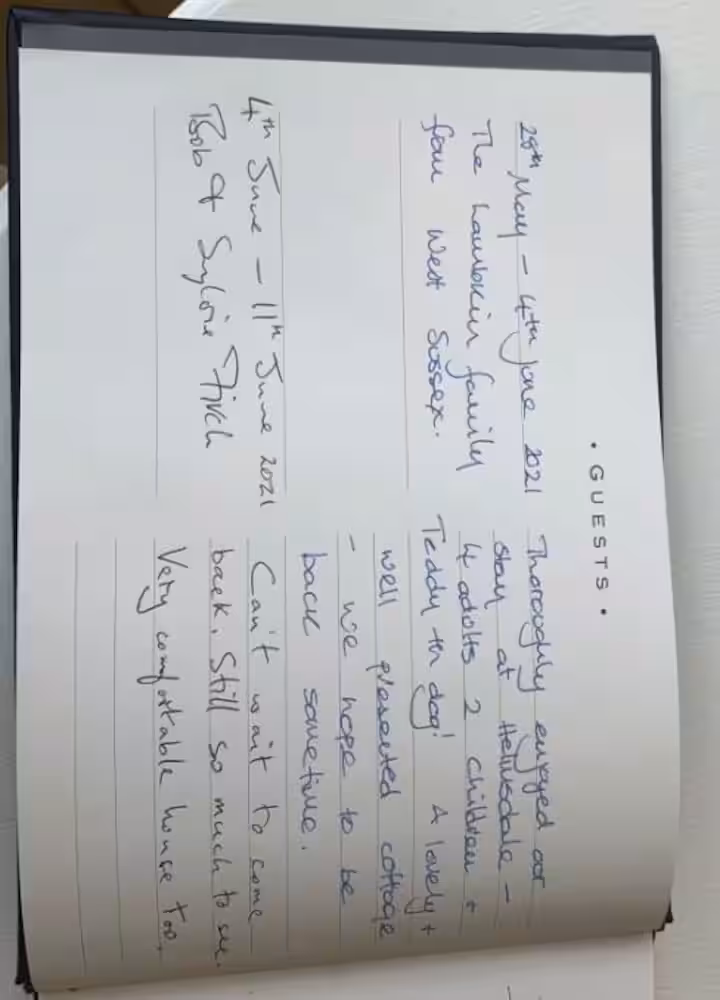 • GUESTS •
28th May - 4th June 2021
The Lambkin family
from West Sussex.
Thoroughly enjoyed our
stay at Helmsdale -
4 adults 2 children +
Teddy th dog! A lovely +
well presented cottage
- we hope to be
back sometime.
4th June - 11th June 2021
Bob & Sylvie Finch
Can't wait to come
back. Still so much to see.
Very comfortable house too.